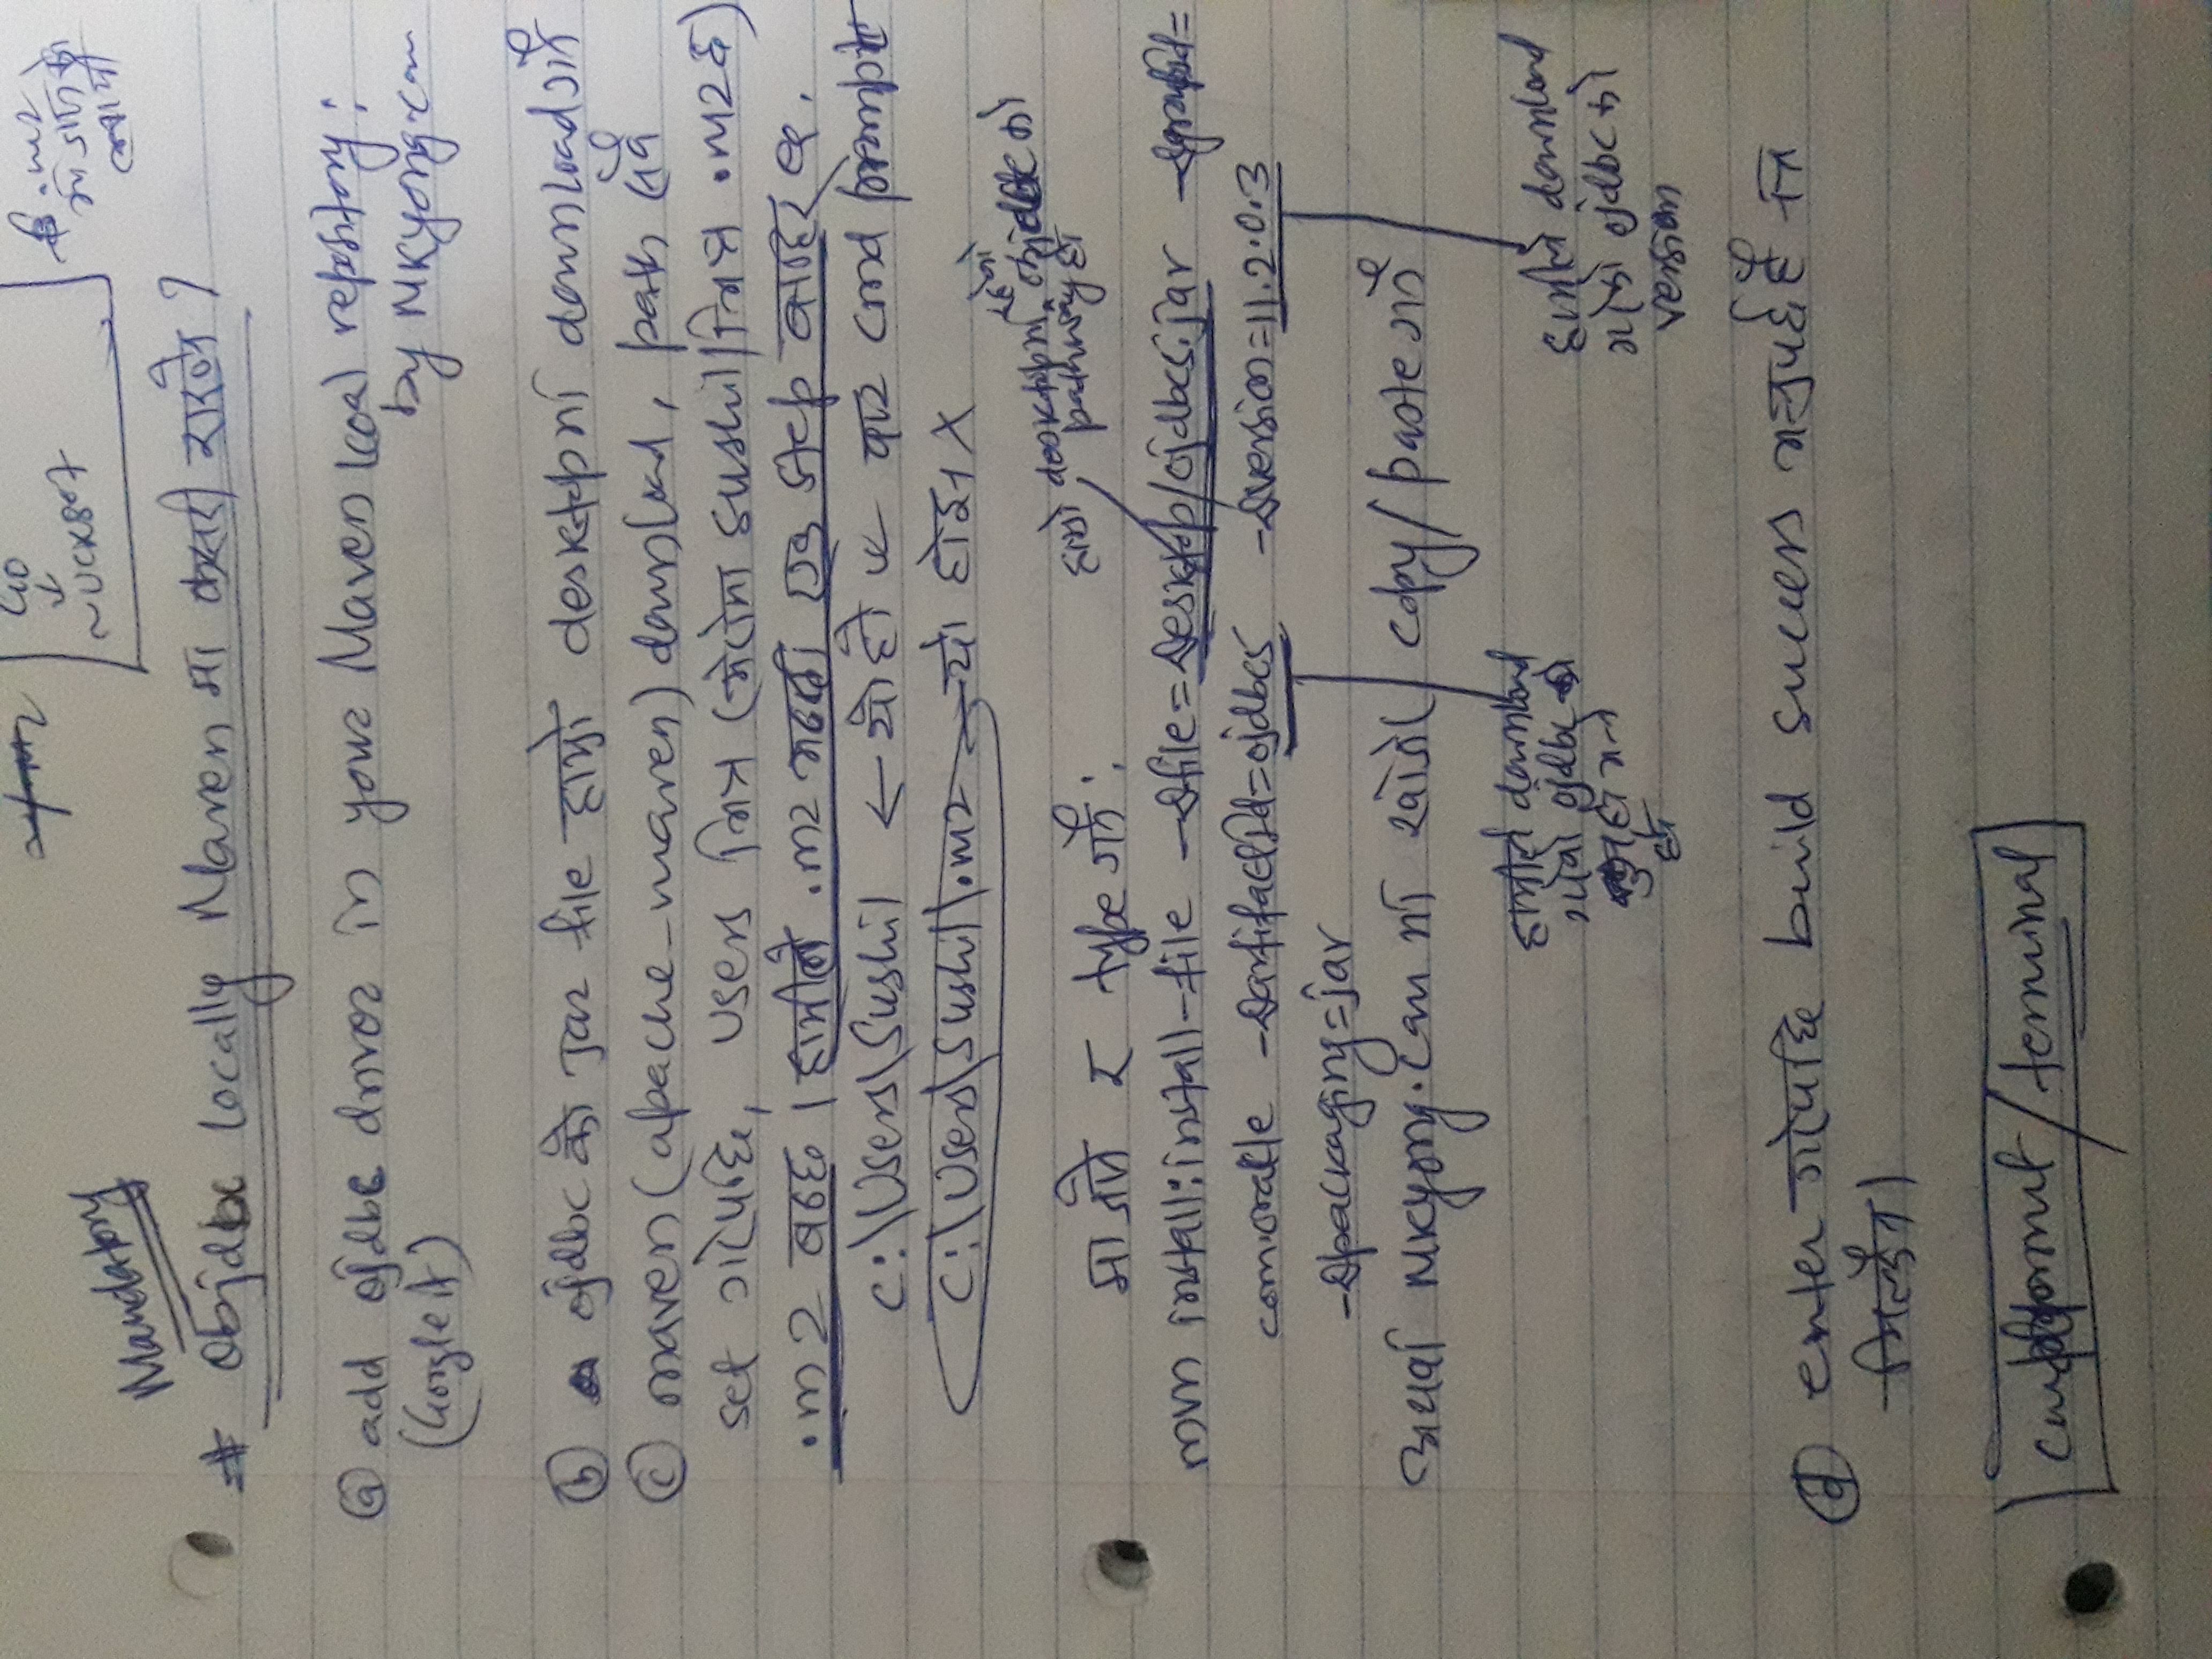 .m2
Mandatory
# Objdbc locally Maven मा कसरी राख्ने ?
ⓐ add ojdbc driver in your Maven local repository:
(Google it) by MKyong.com
ⓑ ojdbc को jar file हाम्रो desktopमा download गर्ने
ⓒ maven (apache-maven) download, path सबै
set गरेपछि, users भित्र (मेरोमा sushil भित्र .m2 छ)
.m2 बन्छ । हामीले .m2 भन्दा एक step बाहिर
C:\Users\Sushil ← यो हो cmd prompt
C:\Users\Sushil\.m2 यो होइन X
हाम्रो desktopमा रहेको objdbc को
pathway हो
मा जाने र type गर्ने:
mvn install:install-file -Dfile=Desktop/ojdbc5.jar -DgroupId=
com.oracle -DartifactId=ojdbc5 -Dversion=11.2.0.3
-Dpackaging=jar
अथवा MKyong.com मा खोजेर copy/paste गर्ने
हामीले download
गरेको ojdbc को
हो भन्ने
हो
हामीले download
गरेको ojdbc को
version
ⓓ enter गरेपछि build success भन्नुपर्छ है नत्र
मिल्दैन ।
/terminal